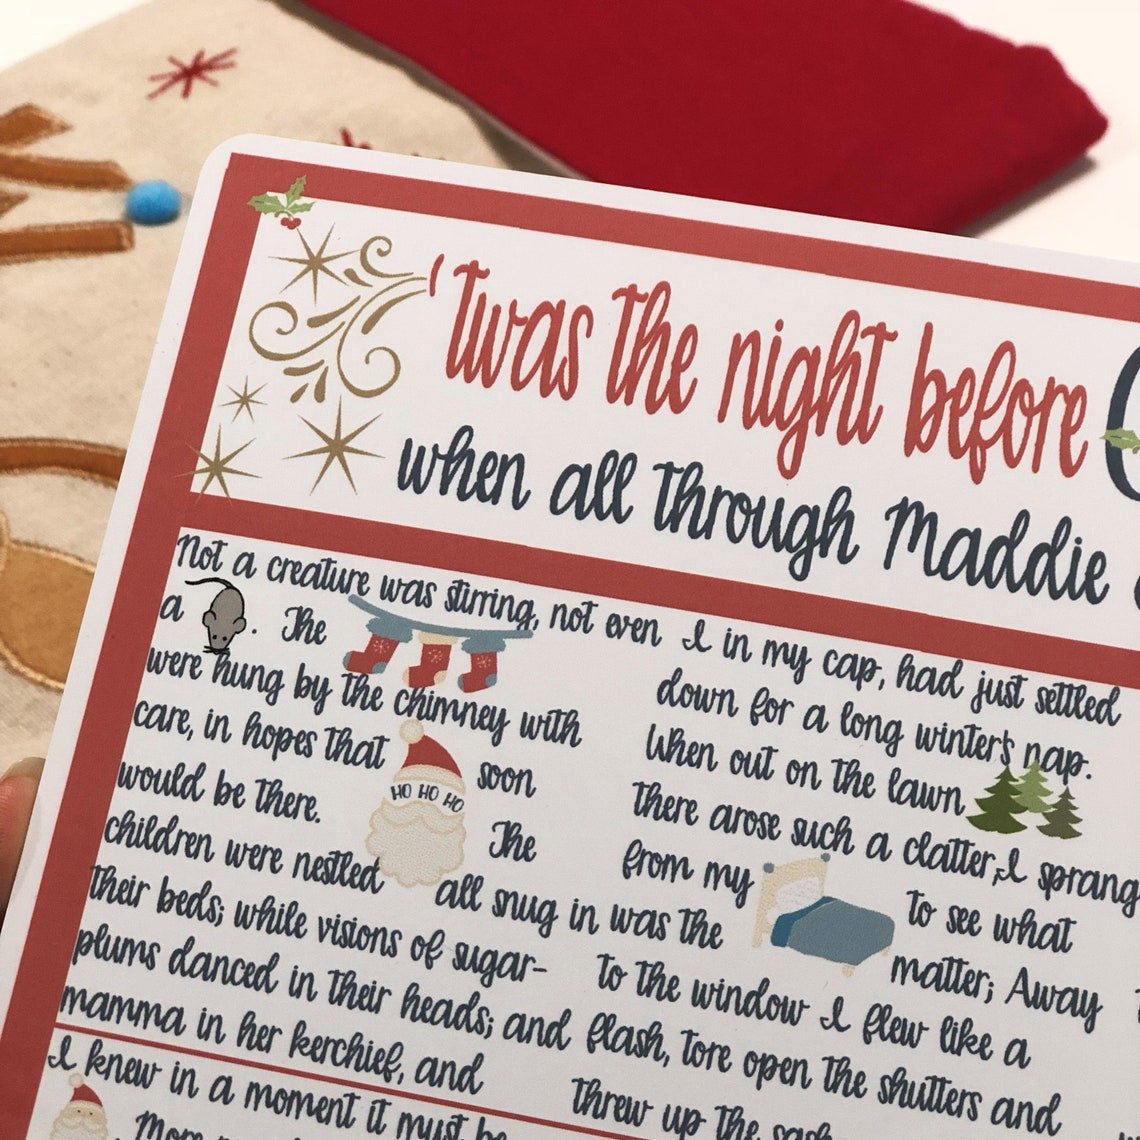 'twas the night before
when all through Maddie
Not a creature was stirring, not even
a . The
were hung by the chimney with
care, in hopes that soon
HO HO HO
would be there. The
children were nestled all snug in
their beds; while visions of sugar-
plums danced in their heads; and
mamma in her kerchief, and
I in my cap, had just settled
down for a long winter's nap.
When out on the lawn
there arose such a clatter, I sprang
from my to see what
was the matter; Away
to the window I flew like a
flash, tore open the shutters and
threw up the sash
I knew in a moment it must be
. More